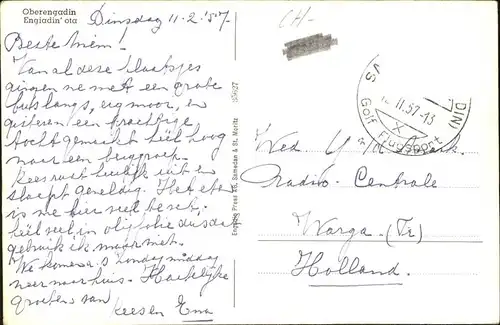 Oberengadin
Engiadin' ota
Dinsdag 11-2-'57
CH-
Beste Miem!
Van al deze plaatsjes
gingen we met een grote
bus langs, erg mooi, en
gisteren een prachtige
tocht gemaakt heel hoog
naar een bergroep.
Kees rust heerlijk uit en
slaapt geweldig. Het eten
is me hier veel best.
heel veel in olijfolie dus dat
gebruik ik maar met.
We komen a.s. zondag middag
weer naar huis. Hartelijke
groeten van
Kees en Ema
Engiadina Press AG, Samedan & St. Moritz
II.57-13
DIN
Golf Flugsport
Wed
Radio-Centrale
Warga (Fr)
Holland.